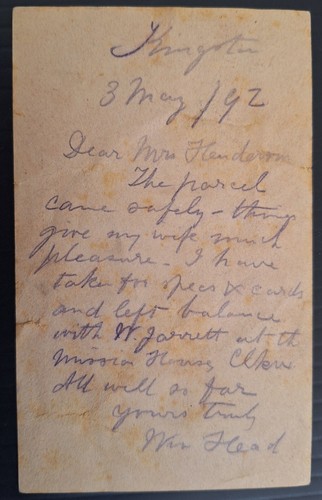 Kingston
3 May /92
Dear Mrs Henderson
The parcel
came safely – things
give my wife much
pleasure – I have
taken for specs & cards
and left balance
with W. Jarrett at th
Mission House,
All well so far
yours truly
Wm Head